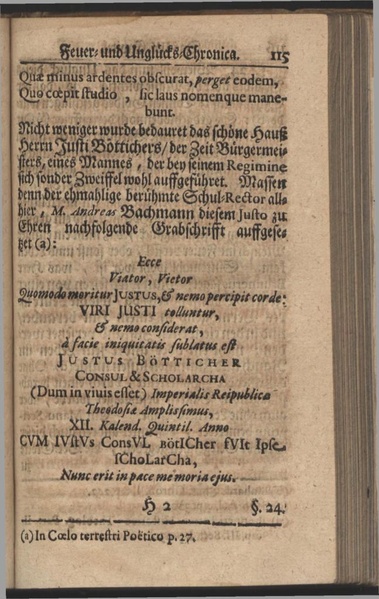 Feuer- und Unglücks-Chronica. 115
Quæ minus ardentes obscurat, perget eodem,
Quo cœpit studio, sic laus nomenque mane-
bunt.
Nicht weniger wurde bedauret das schöne Hauß
Herrn Justi Böttichers / der Zeit Bürgermei-
sters, eines Mannes, der bey seinem Regimine
sich sonder Zweiffel wohl auffgeführet. Massen
denn der ehmahlige berühmte Schul-Rector all-
hier, M. Andreas Bachmann diesem Justo zu
Ehren nachfolgende Grabschrifft auffgese-
tzet (a):
Ecce
Viator, Vietor
Quomodo moritur JUSTUS, & nemo percipit corde:
VIRI JUSTI tolluntur,
& nemo considerat,
à facie iniquitatis sublatus est
JUSTUS BÖTTICHER
CONSUL & SCHOLARCHA
(Dum in viuis esset) Imperialis Reipublicæ
Theodosiæ Amplissimus,
XII. Kalend. Quintil. Anno
CVM IVstVs ConsVL BötICher fVIt Ipse
sChoLarCha,
Nunc erit in pace memoria ejus.
H 2 §. 24.
(a) In Cœlo terrestri Poëtico p. 27.